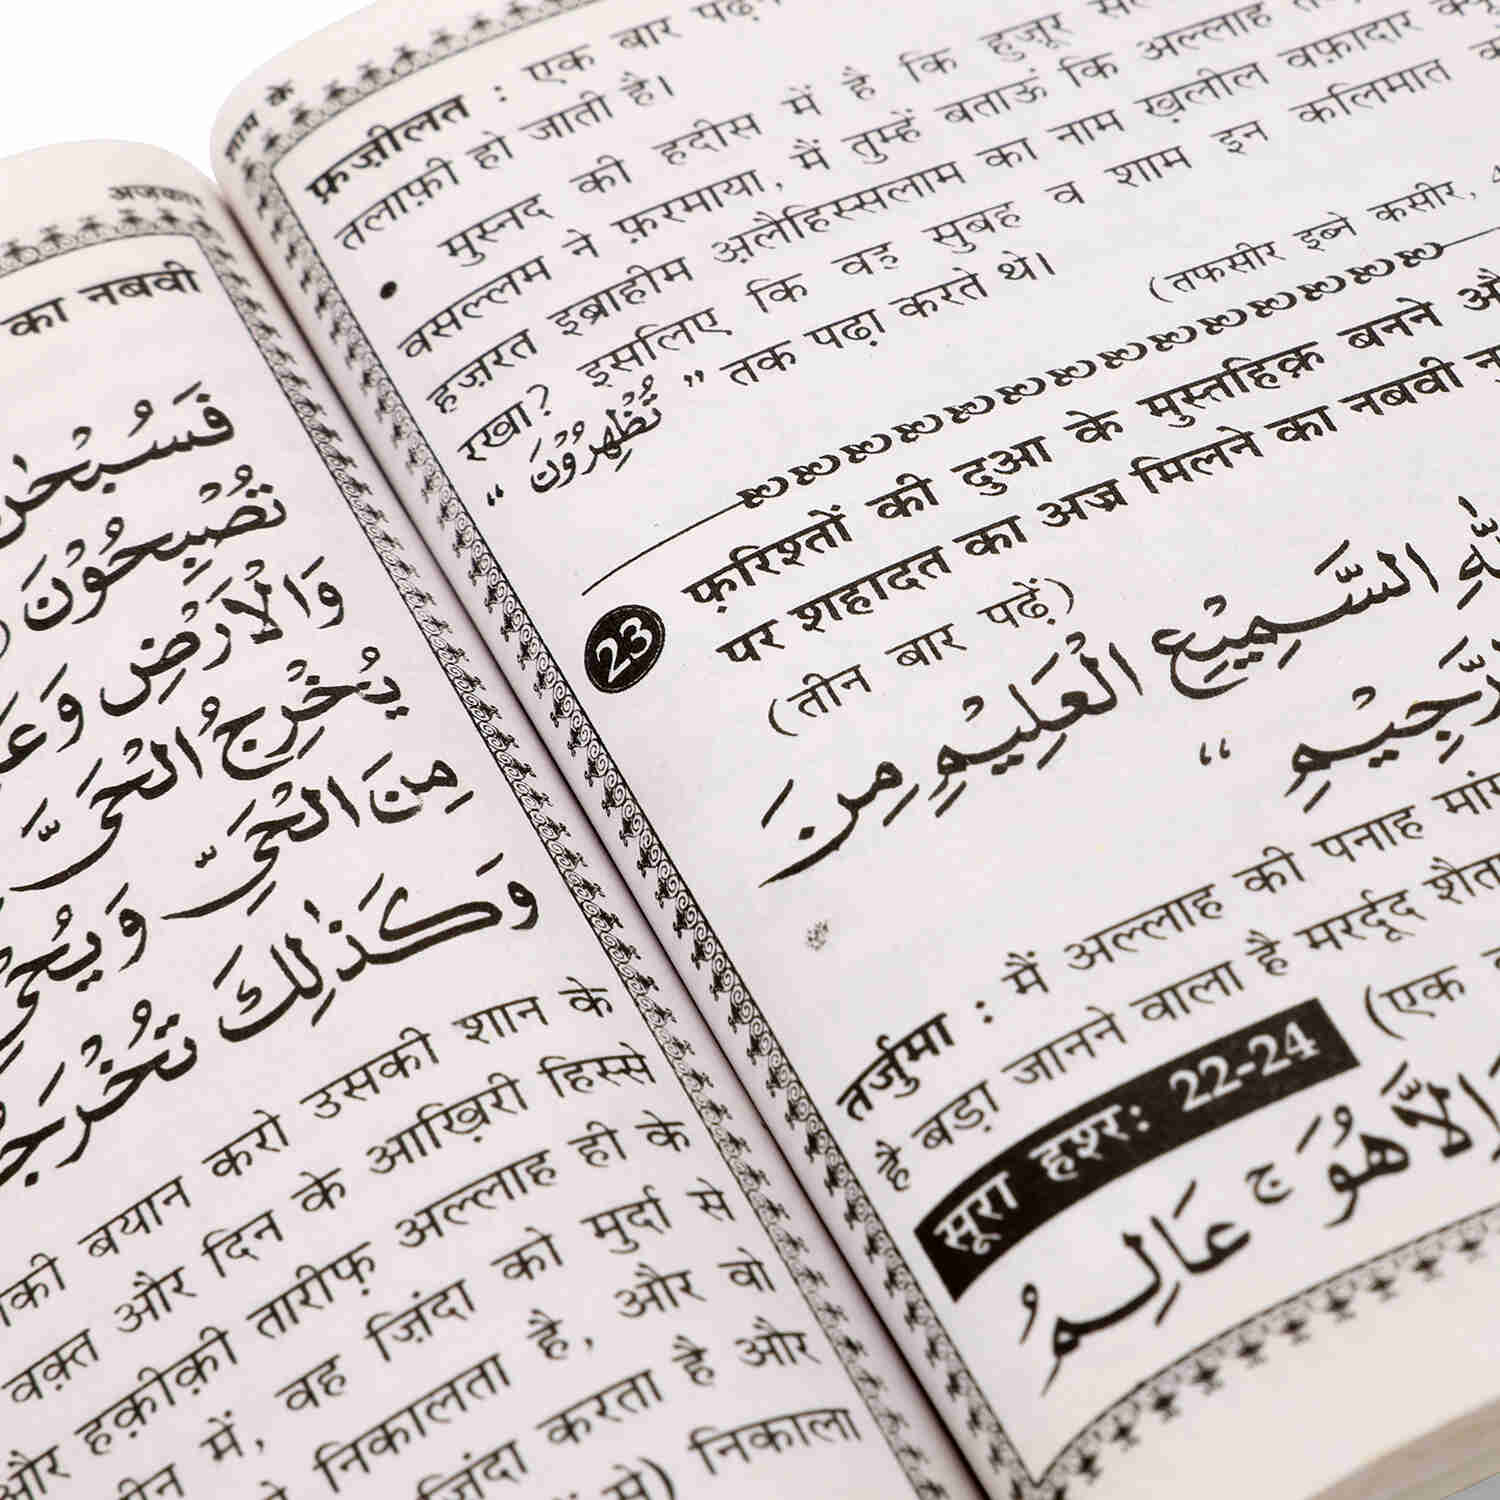 अज़कार
का नबवी
فَسُبْحٰنَ
تُصْبِحُوْنَ
وَالْاَرْضِ وَ
يُخْرِجُ الْحَيَّ
مِنَ الْحَيِّ وَيُحْيِ
وَكَذٰلِكَ تُخْرَجُ
बयान करो उसकी शान के
वक़्त और दिन के आख़िरी हिस्से
और हक़ीक़ी तारीफ़ अल्लाह ही के
में, वह ज़िंदा को मुर्दा से
निकालता है, और वो
ज़िंदा करता है और
से) निकाला
शाम के
फ़ज़ीलत : एक बार
तलाफ़ी हो जाती है।
• मुस्नद की हदीस में है कि हुज़ूर
वसल्लम ने फ़रमाया, मैं तुम्हें बताऊं कि अल्लाह
हज़रत इब्राहीम अ़लैहिस्सलाम का नाम ख़लील वफ़ादार
रखा? इसलिए कि वह सुबह व शाम इन कलिमात
“تُظْهِرُوْنَ” तक पढ़ा करते थे।
(तफसीर इब्ने कसीर,
23 फ़रिश्तों की दुआ के मुस्तहिक़ बनने
पर शहादत का अज्र मिलने का नबवी
(तीन बार पढ़ें)
السَّمِيْعِ الْعَلِيْمِ مِنَ
الرَّجِيْمِ “
तर्जुमा : मैं अल्लाह की पनाह
है बड़ा जानने वाला है मरदूद
सूरा हश्र: 22-24 (एक
اِلَّا هُوَ ۚ عَالِمُ